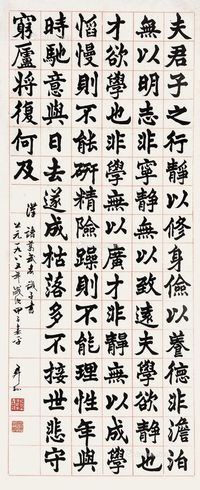 夫君子之行靜以修身儉以養德非澹泊
無以明志非寧靜無以致遠夫學欲靜也
才欲學也非學無以廣才非靜無以成學
慆慢則不能研精險躁則不能理性年與
時馳意與日去遂成枯落多不接世悲守
窮廬將復何及
漢諸葛武侯誡子書
公元一九八五年歲次甲子